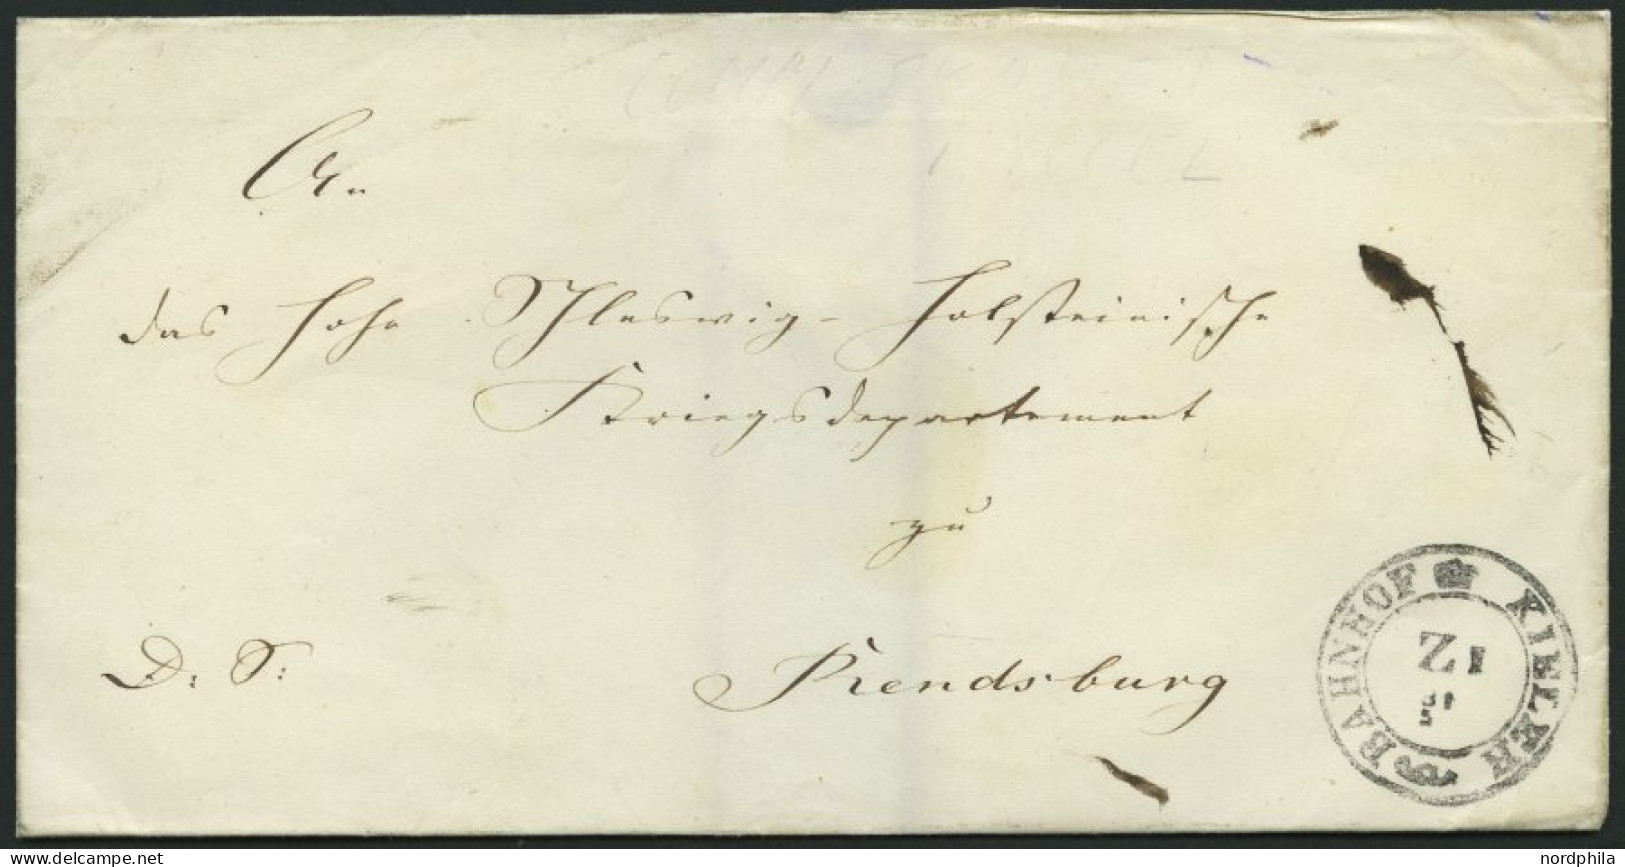 An
das hohe Schleswig-Holsteinische
Kriegsdepartement
zu
D: S:
Rendsburg
KIELER BAHNHOF
Z I
31
5
nordphila